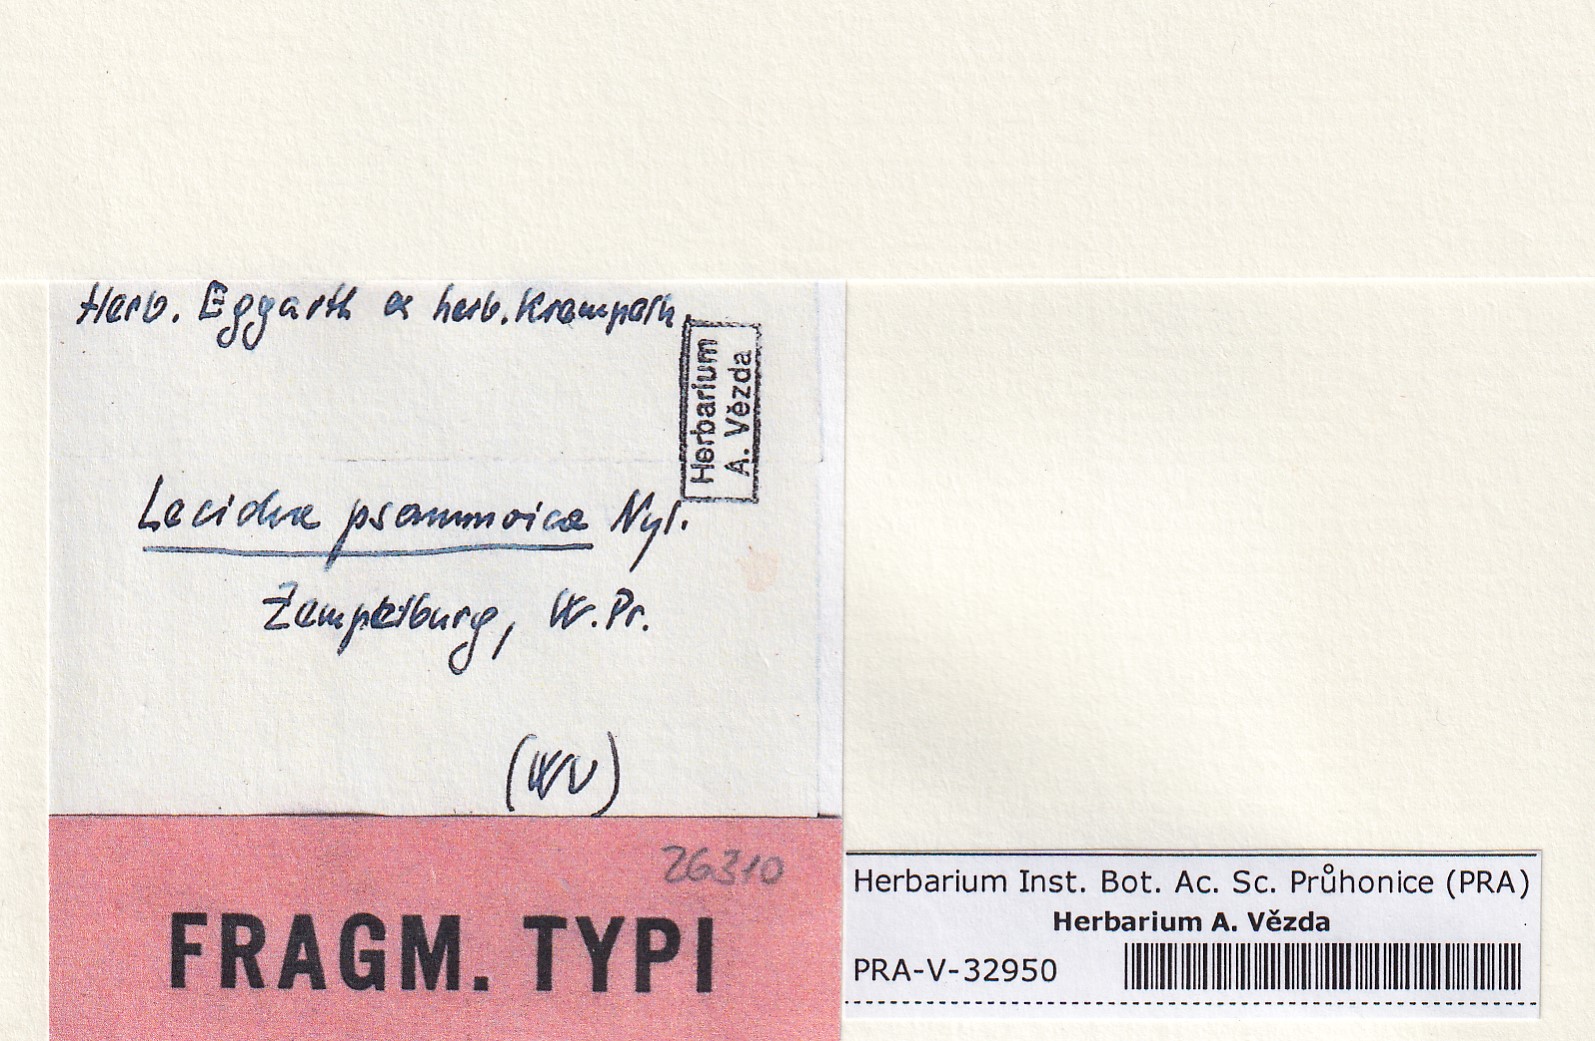 Herb. Eggarth ex herb. Krempelh.
Herbarium
A. Vězda
Lecidea psammoica Nyl.
Zempelburg, W. Pr.
(WU)
26310
FRAGM. TYPI
Herbarium Inst. Bot. Ac. Sc. Průhonice (PRA)
Herbarium A. Vězda
PRA-V-32950